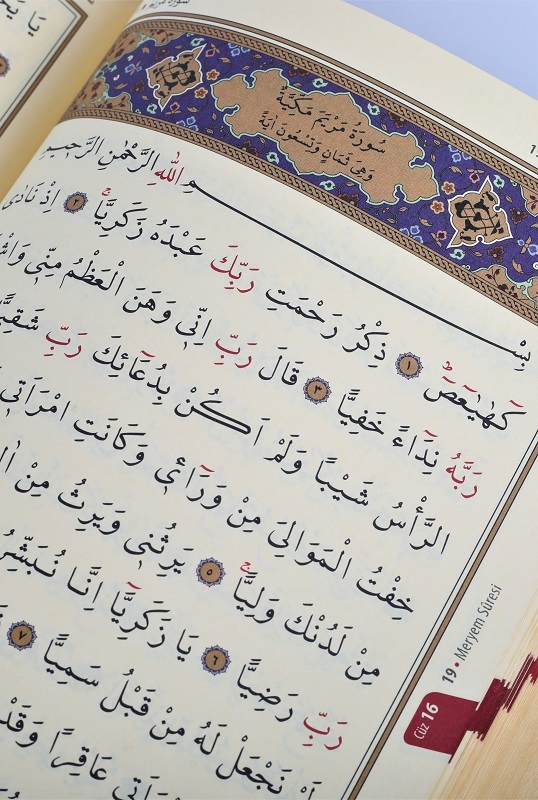 سُورَةُ مَرْيَمَ مَكِّيَّةٌ
وَهِيَ ثَمَانٍ وَتِسْعُونَ اٰيَةً
بِسْمِ اللّٰهِ الرَّحْمٰنِ الرَّحِيمِ
كٓهٰيٰعٓصٓ ﴿١﴾ ذِكْرُ رَحْمَتِ رَبِّكَ عَبْدَهُ زَكَرِيَّا ﴿٢﴾ اِذْ نَادٰى
رَبَّهُ نِدَٓاءً خَفِيًّا ﴿٣﴾ قَالَ رَبِّ اِنّٖى وَهَنَ الْعَظْمُ مِنّٖى
الرَّأْسُ شَيْبًا وَلَمْ اَكُنْ بِدُعَٓائِكَ رَبِّ شَقِيًّا
خِفْتُ الْمَوَالِىَ مِنْ وَرَٓاءٖى وَكَانَتِ امْرَاَتٖى
مِنْ لَدُنْكَ وَلِيًّا ﴿٥﴾ يَرِثُنٖى وَيَرِثُ مِنْ
رَبِّ رَضِيًّا ﴿٦﴾ يَا زَكَرِيَّٓا اِنَّا نُبَشِّرُ
نَجْعَلْ لَهُ مِنْ قَبْلُ سَمِيًّا ﴿٧﴾
عَاقِرًا وَقَدْ
19 • Meryem Sûresi
Cüz 16